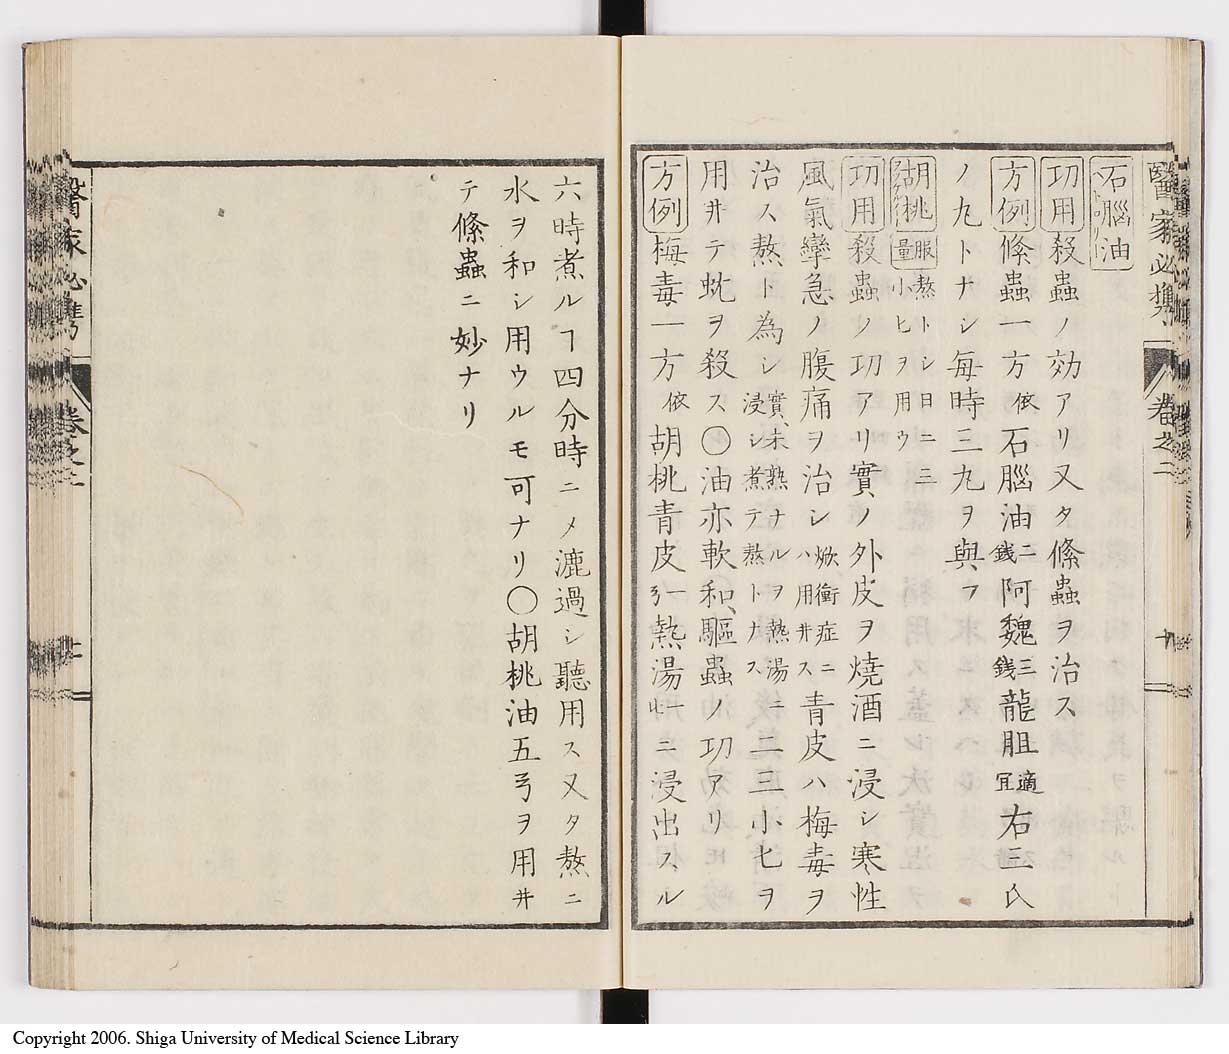 醫家必携 卷之二
石腦油
功用 殺蟲ノ効アリ又タ條蟲ヲ治ス
方例 條蟲一方依石腦油二銭阿魏三銭龍胆適宜右三氏
ノ丸トナシ每時三丸ヲ與フ
胡桃 服量 熬トシ日ニ二三小ヒヲ用ウ
功用 殺蟲ノ功アリ實ノ外皮ヲ燒酒ニ浸シ寒性
風氣攣急ノ腹痛ヲ治シ焮衝症ニハ用井ス青皮ハ梅毒ヲ
治ス熬ト為シ實ノ未熟ナルヲ熱湯ニ浸シ煮テ熬トナス二三小匕ヲ
用井テ蚘ヲ殺ス〇油亦軟和、驅蟲ノ功アリ
方例 梅毒一方依胡桃青皮一弓熱湯一ニ浸出スル
六時煮ルヿ四分時ニメ漉過シ聽用ス又タ熬ニ
水ヲ和シ用ウルモ可ナリ〇胡桃油五弓ヲ用井
テ條蟲ニ妙ナリ
醫家必携 卷之二
Copyright 2006. Shiga University of Medical Science Library